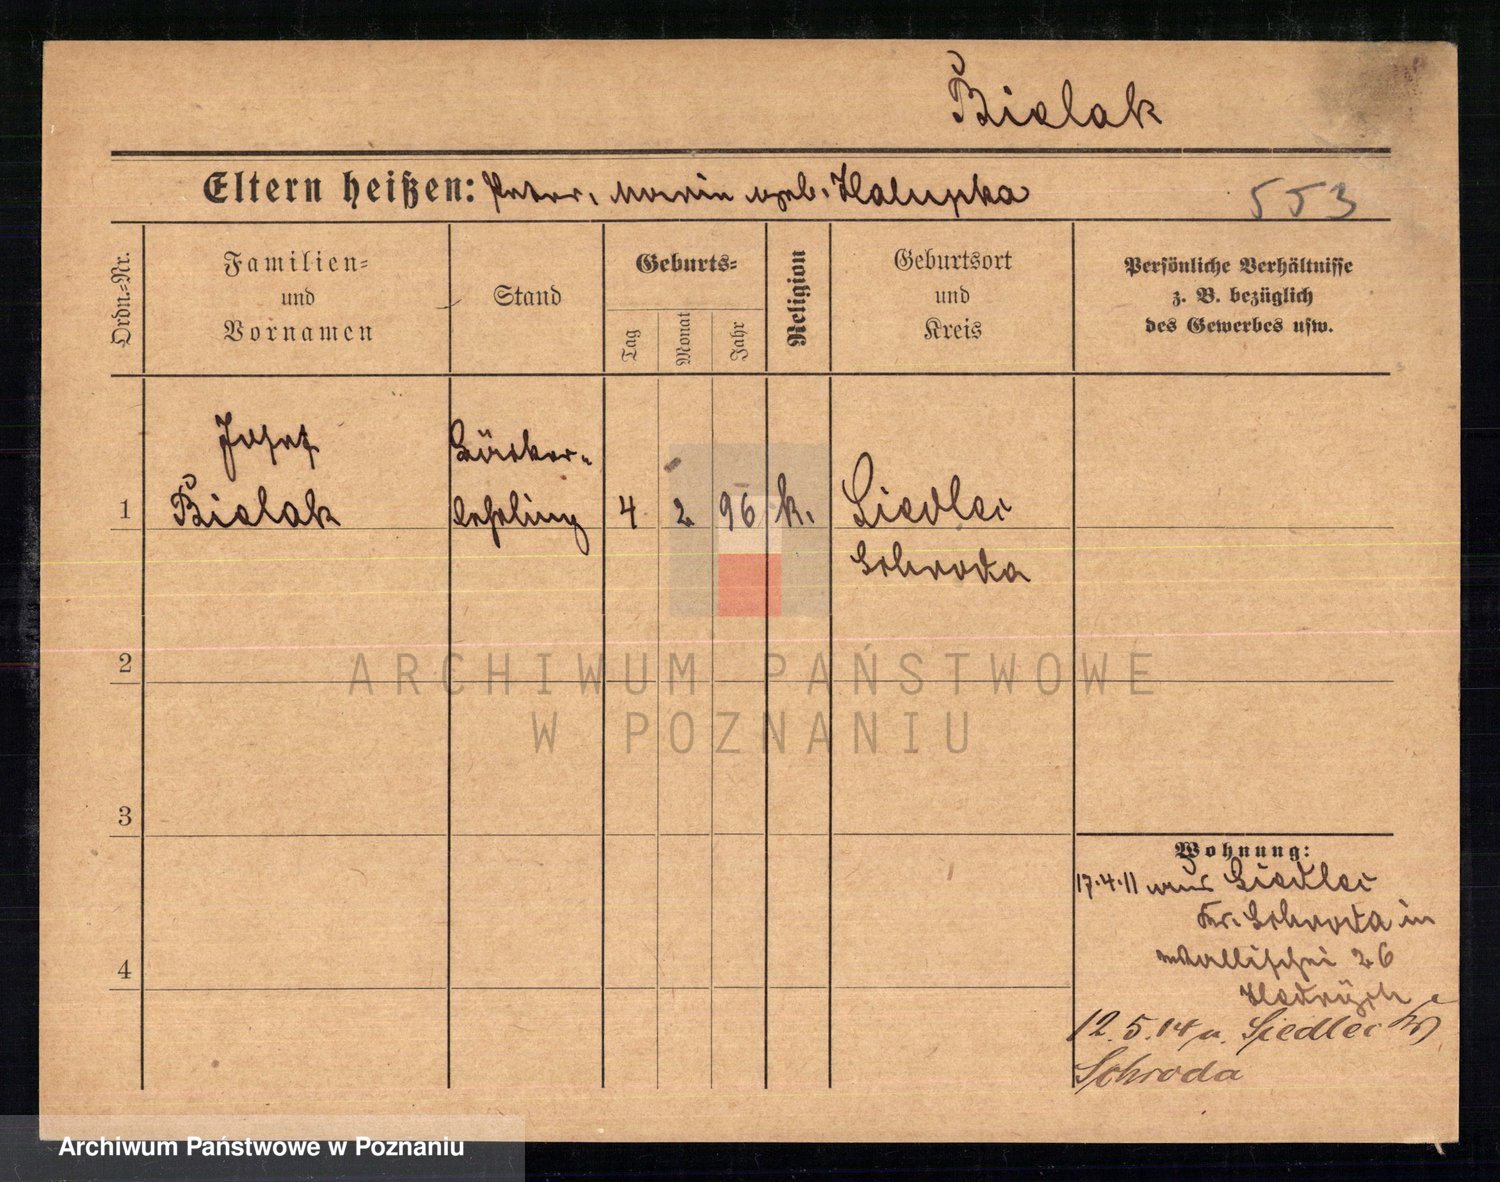 Bielak
Eltern heißen: Peter, Marie geb. Halupka
553
Ordn.-Nr.
Familien-
und
Vornamen
Stand
Geburts-
Tag
Monat
Jahr
Religion
Geburtsort
und
Kreis
Persönliche Verhältnisse
z. B. bezüglich
des Gewerbes usw.
Josef
Bäcker-
1 Bielak lehrling 4 2 96 k. Siedlec
Schroda
2
ARCHIWUM PAŃSTWOWE
W POZNANIU
3
Wohnung:
17.4.11 aus Siedlec
Kr. Schroda in
Wallischei 26
4
12.5.14 n. Siedlec Kr
Schroda
Archiwum Państwowe w Poznaniu